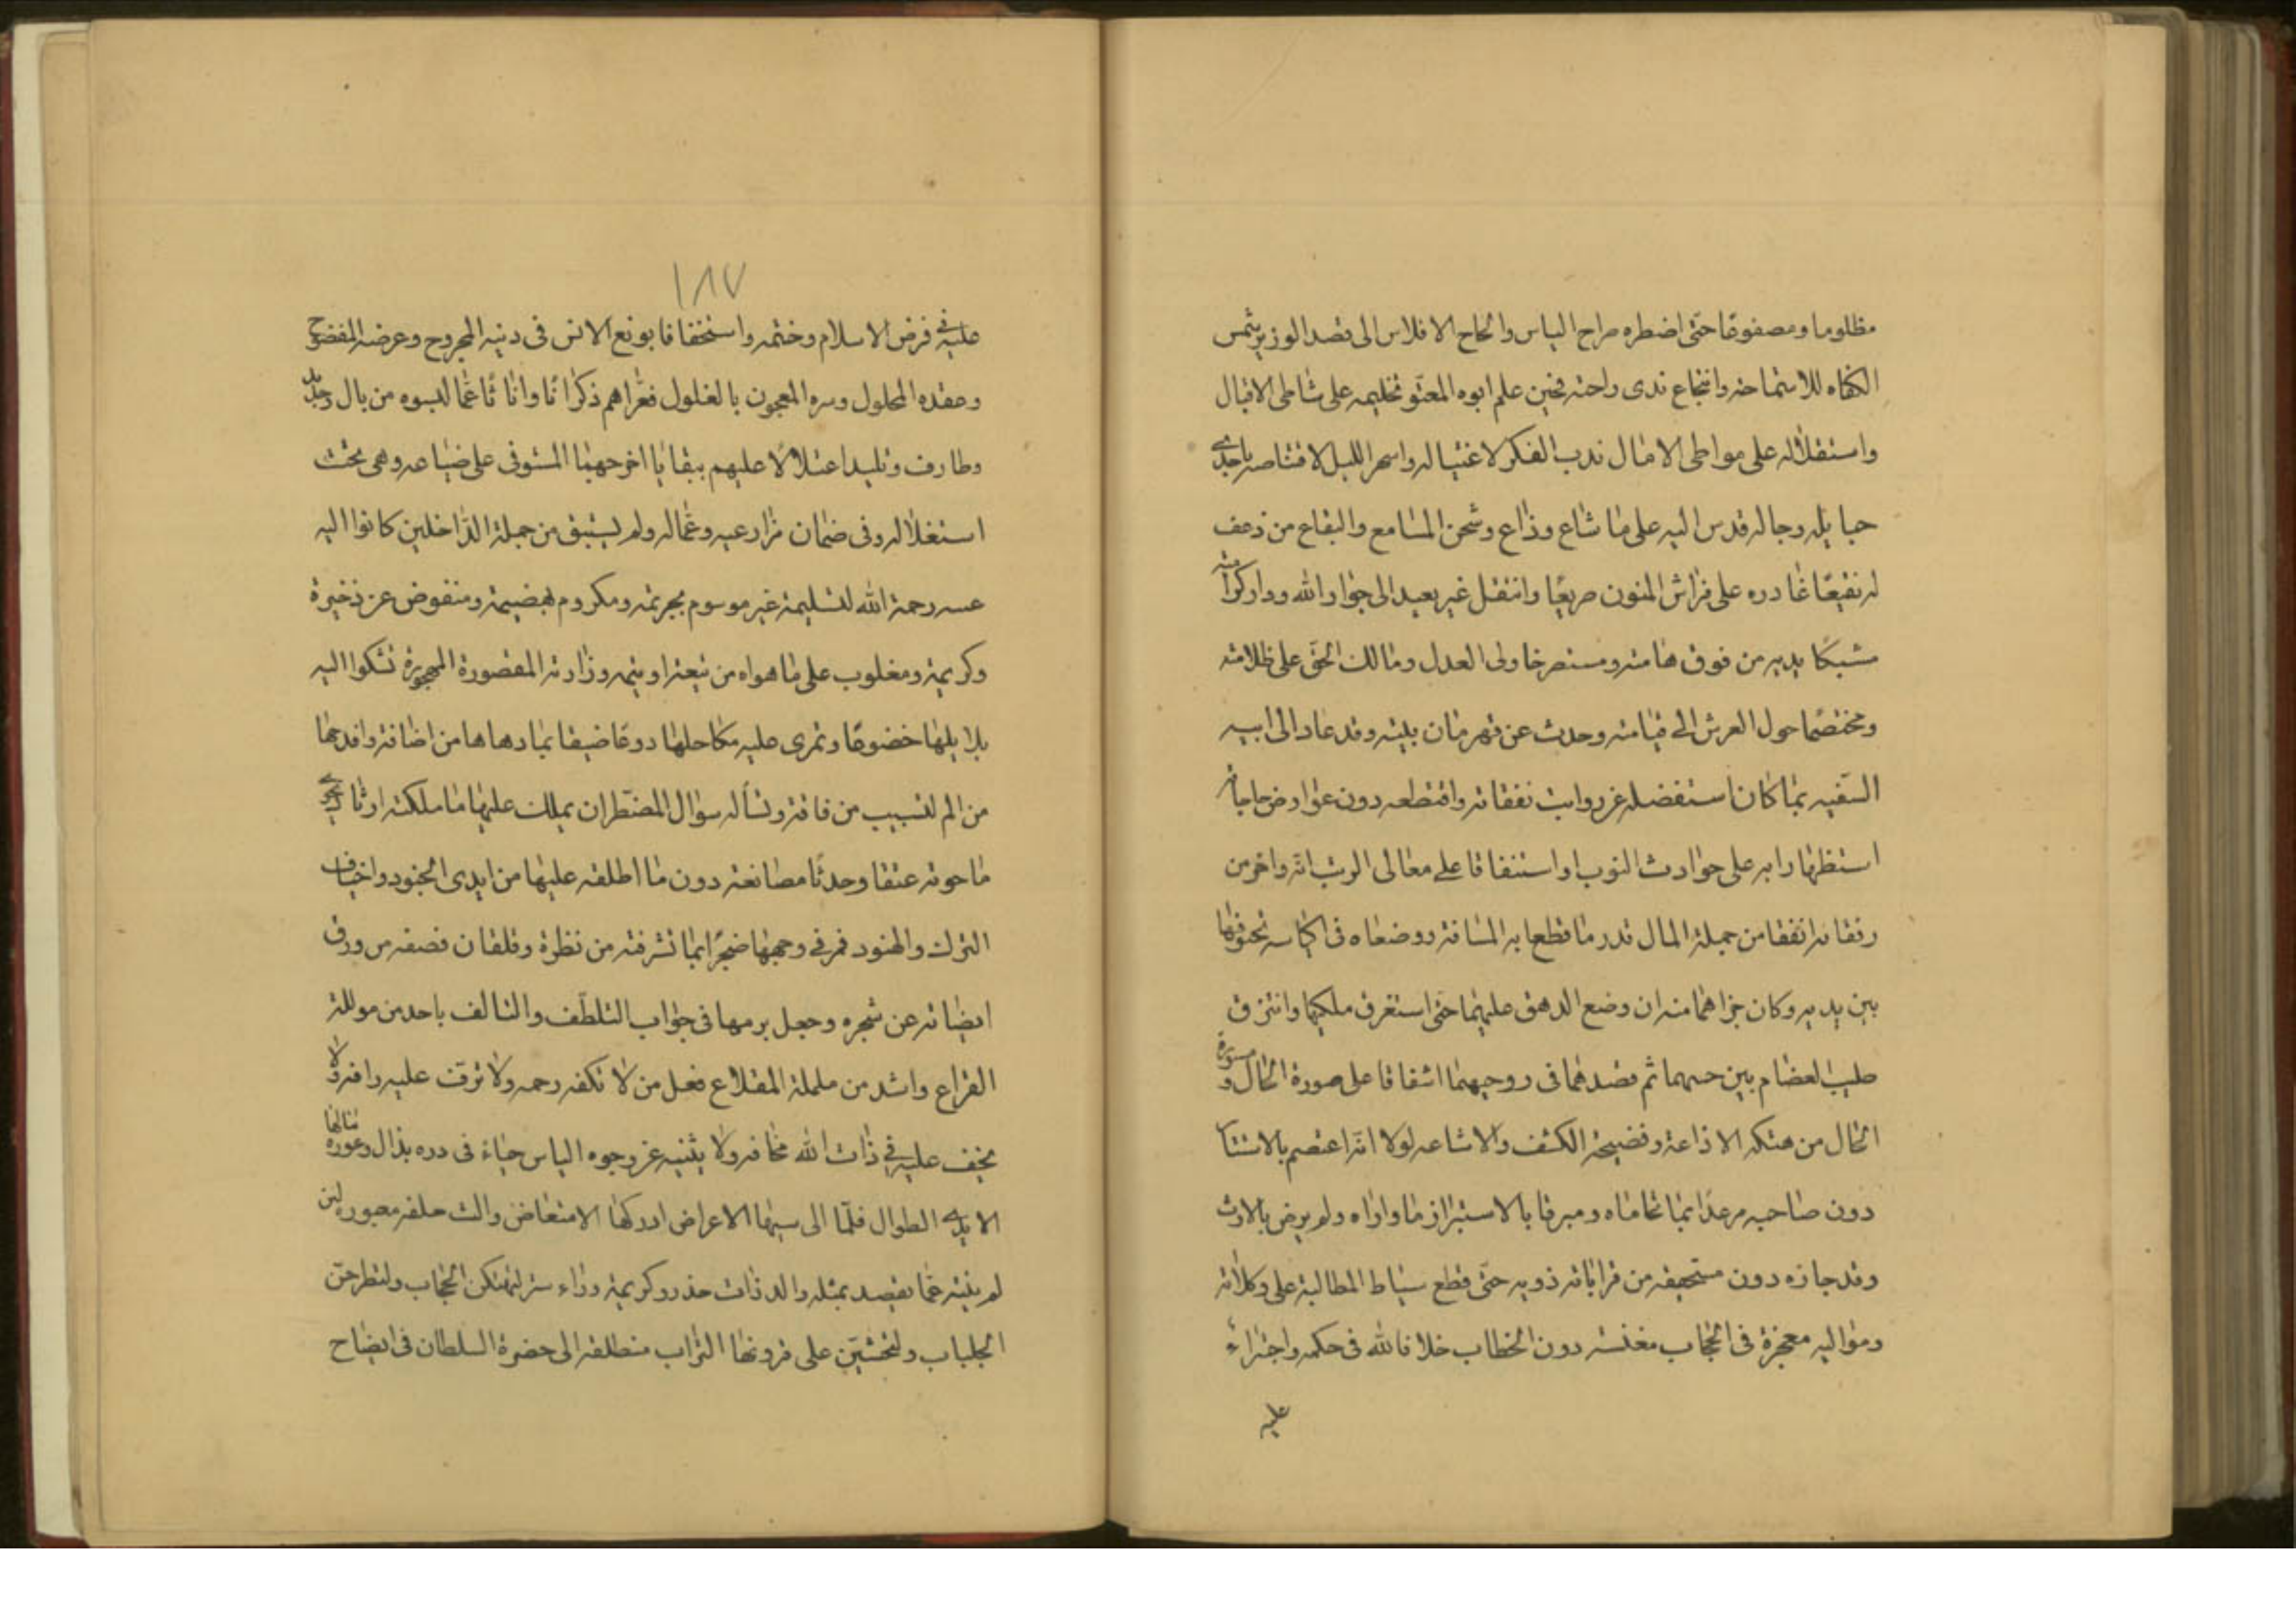 مظلوما ومصفوقا حتى اضطره صراح الياس والحاح الافلاس الى قصد الوزير شمس
الكفاه للاستماحة وانتجاع ندى راحته فحين علم ابوه المعتو تخليمه على شاطى الاقبال
واستقلاله على مواطى الامال ندب الفكر لاغتياله واسهر الليل لاقتناصه باحدى
حبايله وحاله فدس اليه على ما شاع وذاع وشحن المسامع والبقاع من ذعف
له نقيعا غادره على فراش المنون صريعا وانتقل غير بعيد الى جوار الله ودارکرامته
مشبكا يديه من فوق هامته ومستصرخا ولى العدل ومالك الحق على ظلامته
ومختصما حول العرش الى قيامته وحدث عن قهرمان بيته وقد عاد الى ابيه
السفيه بما كان استفضله عن رواتب نفقاته واقتطعه دون عوارض حاجاته
استظهارا به على حوادث النوب او استنفاقا على معالى الرتب انه واخر من
رفقائه انفقا من جملة المال قدر ما قطعا به المسافة ووضعاه فى اكياسه بختوفها
بين يديه وكان جزاهما منه ان وضع الدهق عليهما حتى استغرق ملكيهما وانتزق
صليب العضام بين جسمهما ثم قصدهما فى روحيهما اشفاقا على صورة الحال و مستورة
الحال من هتكه الاذاعة وفضيحة الكشف والاشاعه لولا انه اعتصم بالاستتار
دون صاحبه مرعدا بما تحاماه ومبرقا بالاستبراز ما واراه ولم يرض بالارث
وقد جازه دون مستحقه من قراباته ذويه حتى قطع سياط المطالبة على وكلائه
ومواليه معجزة فى الحجاب مغنسه دون الخطاب خلافا لله فى حكمه واجتراء
عليه
١٨٧
عليه فى فرض الاسلام وختمه واستخفافا بوقع الانس فى دينه المجروح وعرضه المفضوح
وعقده المحلول وسره المعجون بالغلول فعراهم ذكرانا واناثا عما لبسوه من بال وجديد
وطارف وتليد اعتلالا عليهم ببقايا اخرجها المستوفى على ضياعه وهى تحت
استغلاله وفى ضمان مزارعيه وعماله ولم يستبق من جملة الداخلين كانوا اليه
عسه رحمة الله لتسليمة غير موسوم بجريمة ومكروم بهضيمة ومنفوض عن ذخيرة
وكريمة ومغلوب على ما هواه من تبعة او يتيمه وزادته المقصورة المهجورة تشكوا اليه
بلابلها خضوعا وتمرى عليه مكاحلها دوعا ضيفا بما دهاها من اضافة وافدحها
من الم لتسبيب من فاقة وتسأله سوال المضطر ان يملك عليها ما ملكته ارثا
ما حوته عتقا وحدثا مصانعة دون ما اطلقه عليها من ايدى الجنود واخياف
الترك والهنود فمر فى وجهها ضجرا بما تشرفته من نظرة وقلقان قصفه من ورق
ايضائه عن شجره وجعل يرمها فى جواب التلطف والتالف باحد من مولله
القراع واشد من ململة المقلاع فعل من لا تكفه رحمه ولا ترقت عليه رافه ولا
يخف عليه فى ذات الله مخافه ولا يثنيه عن وجوه الياس حياء فى دره بذال وعوره مثالها
الايدى الطوال فلما الى سيها الاعراض ادركها الامتعاض والت حلفه مصوره لين
لم يثنه عما يقصد بمثله والد ذات حذر وكريمة وراء ستر ليهتكن الحجاب ولتطرحن
الجلباب ولتحشين على قرونها التراب منطلقه الى حضرة السلطان فى ايضاح